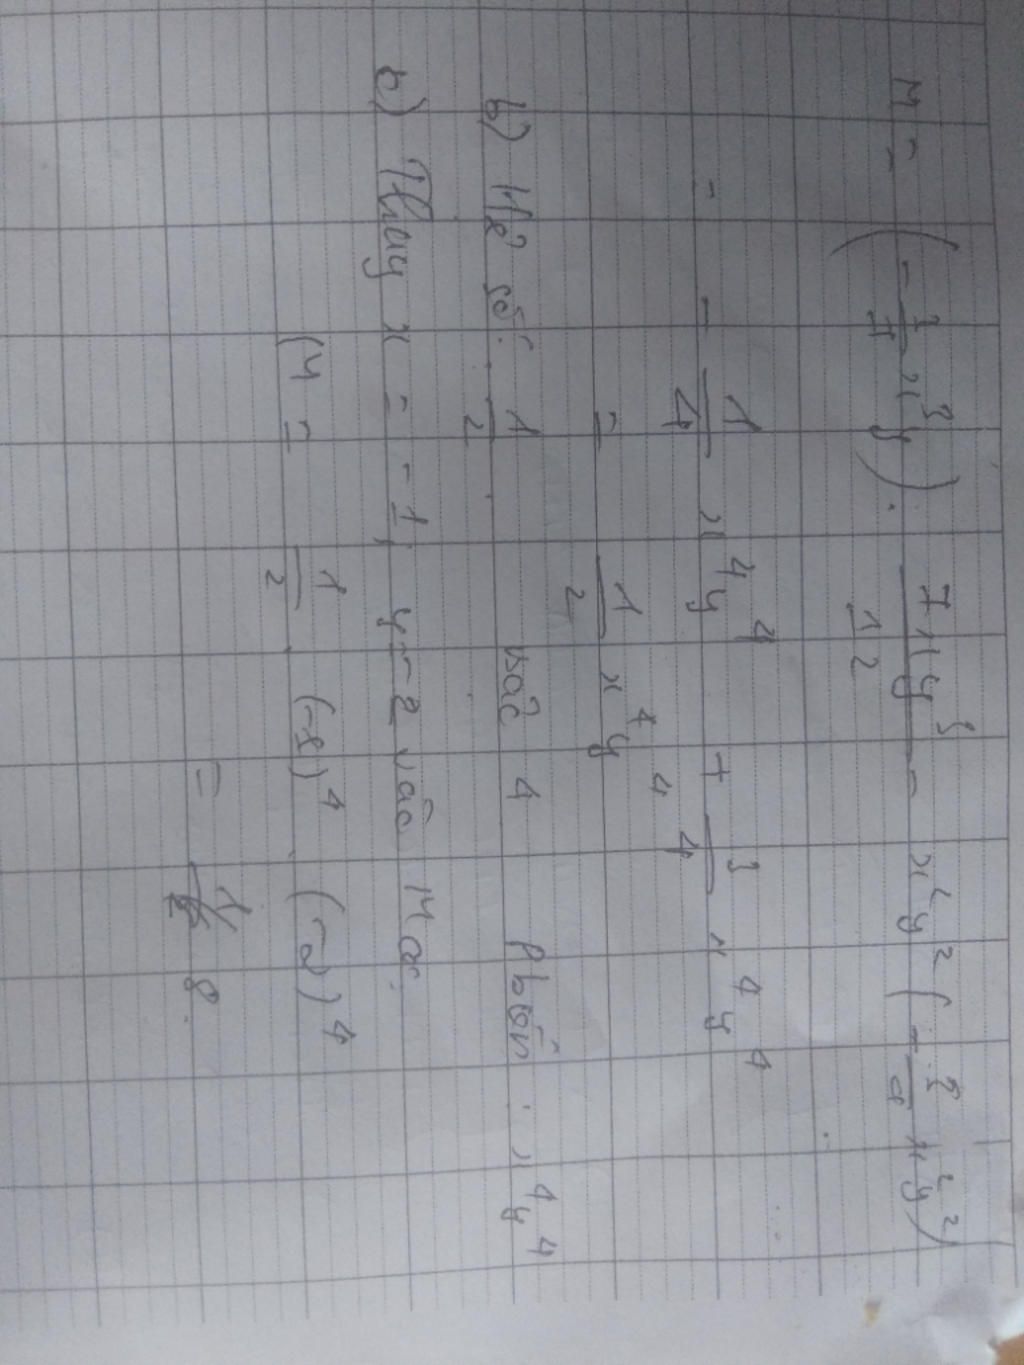 M = (-3/7 x³y) . 7xy³/12 - x²y² (-3/4 x²y²)
= - 1/4 x⁴y⁴ + 3/4 x⁴y⁴
= 1/2 x⁴y⁴
b) Hệ số: 1/2 bậc 4 Phần : x⁴y⁴
c) Thay x = -1, y=-2 vào M có:
M = 1/2 (-1)⁴ . (-2)⁴
= 8.